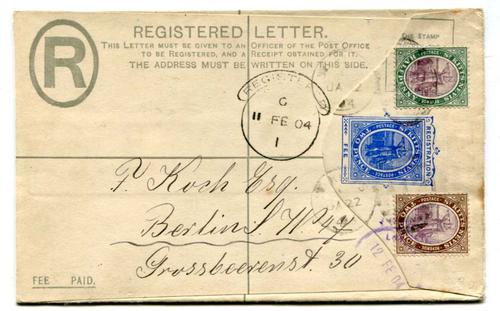 REGISTERED LETTER.
THIS LETTER MUST BE GIVEN TO AN OFFICER OF THE POST OFFICE
TO BE REGISTERED, AND A RECEIPT OBTAINED FOR IT.
THE ADDRESS MUST BE WRITTEN ON THIS SIDE.
R
STAMP
REGISTER
C
11 FE 04
1
REGISTRATION
FEE
POSTAGE
ST KITTS NEVIS
JA 22
F. Koch Esq.
Berlin S. W 47
Grossbeerenst. 30
POSTAGE
12 FE 04
FEE PAID.